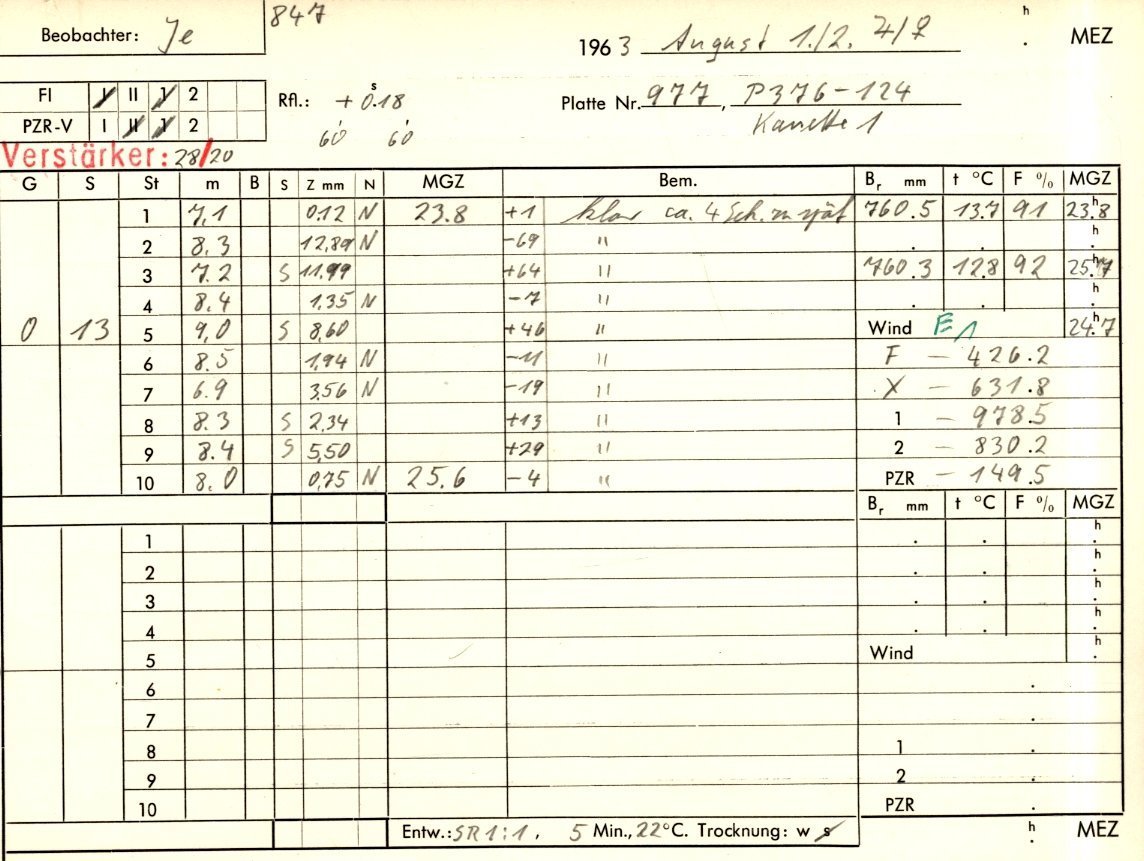 847
Beobachter: Je
h
1963 August 1./2. ♃/♀ . MEZ
FI I II 1 2
PZR-V I II 1 2
Rfl.: + 0.18 s
60 60
Platte Nr. 977, P376-124
Kassette 1
Verstärker: 28/20
G S St m B S Z mm N MGZ Bem. Br mm t °C F % MGZ
1 7.1 0.12 N 23.8 +1 klar ca. 4 Sch. zu spät 760.5 13.7 91 23.8 h
2 8.3 12,89 N -69 " . . h .
3 7.2 S 11.99 +64 " 760.3 12.8 92 25.7 h
4 8.4 1.35 N -7 " . . h .
0 13 5 9,0 S 8,60 +46 " Wind E1 24.7 h
6 8.5 1,94 N -11 " F - 426.2
7 6.9 3,56 N -19 " X - 631.8
8 8.3 S 2,34 +13 " 1 - 978.5
9 8.4 S 5,50 +29 " 2 - 830.2
10 8.0 0,75 N 25.6 -4 " PZR - 149.5
Br mm t °C F % MGZ
1 . . h .
2 . . h .
3 . . h .
4 . . h .
5 Wind h .
6 .
7 .
8 1 .
9 2 .
10 PZR .
Entw.: SR 1:1, 5 Min., 22°C. Trocknung: w s h . MEZ